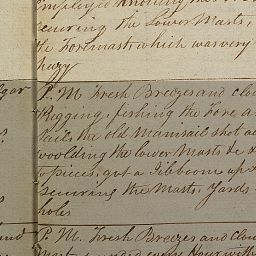 employed knotting
securing the Lower Masts,
the Foremast which was very
hazy
P. M. Fresh Breezes and clou
Rigging, fishing the Fore a
sails the old Mainsail shot a
woolding the lower Masts &
to pieces, got a Jibboom up
securing the Masts, Yards
holes
and P. M. Fresh Breezes and Clou
every Hour with